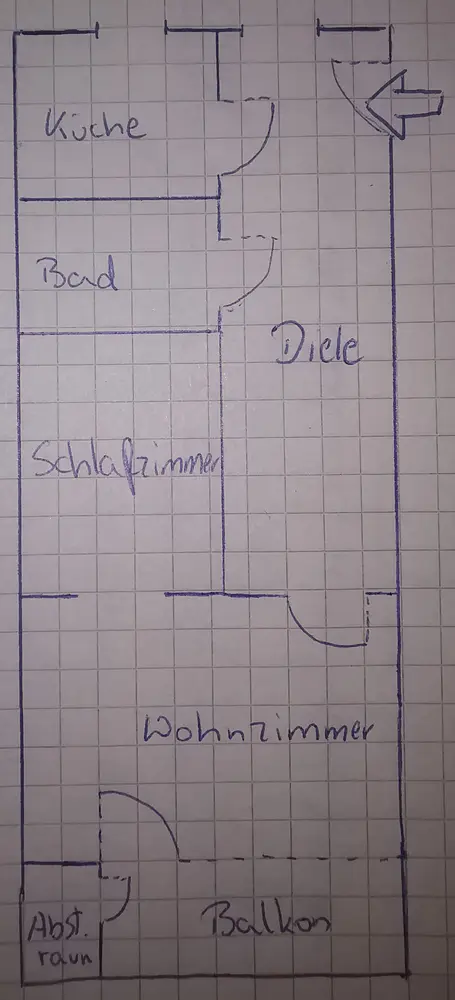 Küche
Bad
Diele
Schlafzimmer
Wohnzimmer
Abst.
raum
Balkon